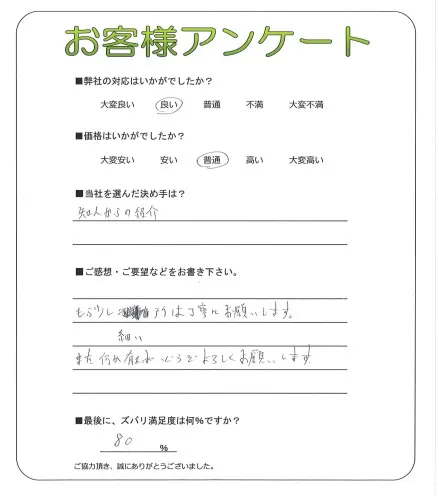 お客様アンケート
■弊社の対応はいかがでしたか？
大変良い 良い 普通 不満 大変不満
■価格はいかがでしたか？
大変安い 安い 普通 高い 大変高い
■当社を選んだ決め手は？
知人からの紹介
■ご感想・ご要望などをお書き下さい。
もう少し は丁寧にお願いします。
細い
また何か有ればどうぞよろしくお願いします
■最後に、ズバリ満足度は何%ですか？
80 %
ご協力頂き、誠にありがとうございました。